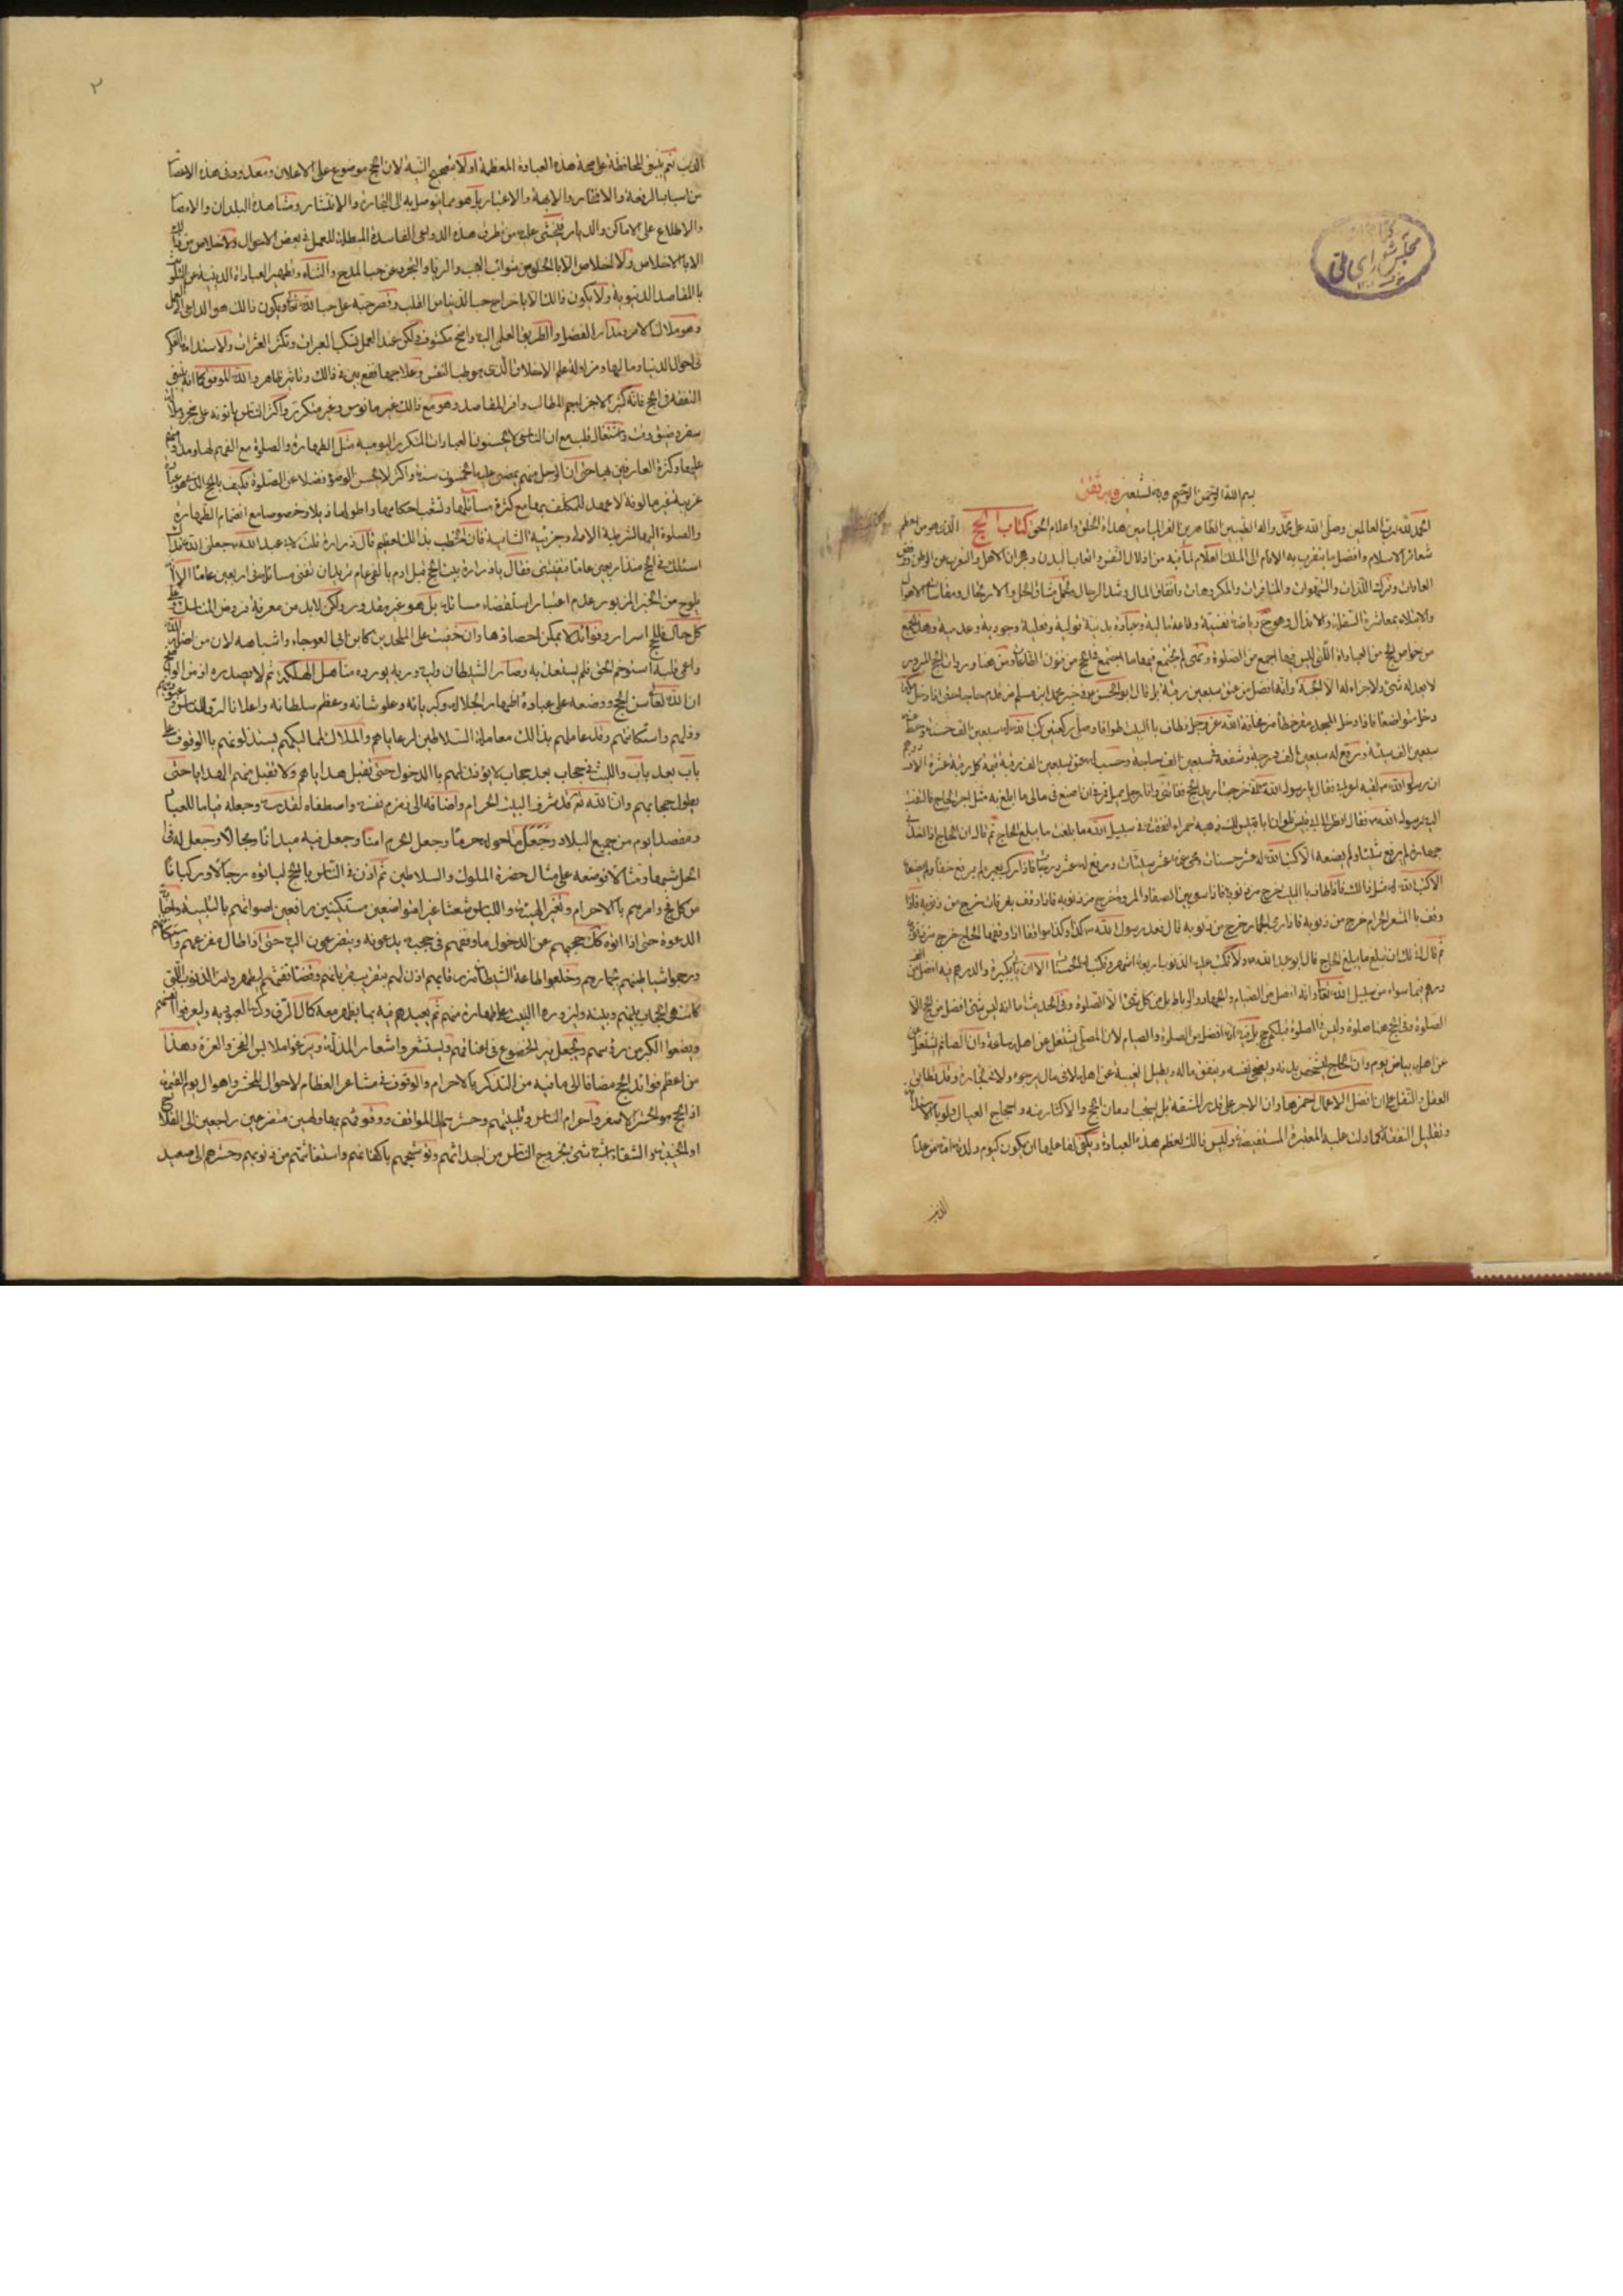 كتابخانه
مجلس شوراى ملى
بسم الله الرحمن الرحيم وبه نستعين
الحمد لله رب العالمين وصلى الله على محمد واله الطيبين الطاهرين الغر الميامين هداة الخلق واعلام الحق كتاب الحج الذى هو من اعظم
شعائر الاسلام وافضل ما يتقرب به الانام الى الملك العلام لما فيه من اذلال النفس واتعاب البدن وهجران الاهل والتغرب عن الوطن ورفض
العادات وترك اللذات والشهوات والمنافرات والمكروهات وانفاق المال وشد الرحال وتحمل مشاق الحل والارتحال ومقاساة الاهوال
والابتلاء بمعاشرة السفلة والانذال وهو ح رياضة نفسية وطاعة مالية وعبادة بدنية قولية وفعلية وجودية وعدمية وهذا الجمع
من خواص الحج من العبادات التى ليس فيها اجمع من الصلوة وهى لم يجتمع فيها ما اجتمع فى الحج من فنون الطاعات ومن هنا ورد ان الحج المبرور
لا يعدله شئ ولا جزاء له الا الجنة وانه افضل من عتق سبعين رقبة بل قال ابو الحسن فى خبر محمد بن مسلم من قدم حاجا حتى اذا دخل مكة
دخل متواضعا فاذا دخل المسجد قصر خطاه من مخافة الله عز وجل فطاف بالبيت طوافا وصلى ركعتين كتب الله له سبعين الف حسنة وحط عنه
سبعين الف سيئة ورفع له سبعين الف درجة وشفعه فى سبعين الف حاجة وحسب له عتق سبعين الف رقبة قيمة كل رقبة عشرة الاف درهم
ان رسول الله لقيه اعرابى فقال يا رسول الله انى خرجت اريد الحج ففاتنى وانا رجل مميل فمرنى ان اصنع فى مالى ما ابلغ به مثل اجر الحاج فالتفت
اليه رسول الله فقال انظر الى ابى قبيس فلو ان ابا قبيس لك ذهبة حمراء انفقته فى سبيل الله ما بلغت ما يبلغ الحاج ثم قال ان الحاج اذا اخذ فى
جهازه لم يرفع شيئا ولم يضعه الا كتب الله له عشر حسنات ومحى عنه عشر سيئات ورفع له عشر درجات فاذا ركب بعيره لم يرفع خفا ولم يضعه
الا كتب الله له مثل ذلك فاذا طاف بالبيت خرج من ذنوبه فاذا سعى بين الصفا والمروة خرج من ذنوبه فاذا وقف بعرفات خرج من ذنوبه فاذا
وقف بالمشعر الحرام خرج من ذنوبه فاذا رمى الجمار خرج من ذنوبه قال فعد رسول الله كذا وكذا موقفا اذا وقفها الحاج خرج من ذنوبه
ثم قال انى لك ان تبلغ ما يبلغ الحاج قال ابو عبد الله ولا تكتب عليه الذنوب اربعة اشهر وتكتب له الحسنات الا ان ياتى بكبيرة
الصلوة وفى الحج هنا صلوة وليس فى الصلوة قبلكم حج بل فيه انه افضل من الصلوة والصيام لان المصلى يشتغل عن اهله ساعة وان الصائم يشتغل
عن اهله بياض يوم وان الحاج ليشخص بدنه ويضحى نفسه وينفق ماله ويطيل الغيبة عن اهله لا فى مال يرجوه ولا الى تجارة وقد تطابق
العقل والنقل على ان افضل الاعمال احمزها وان الاجر على قدر المشقة بل يستحب ادمان الحج والاكثار منه واحجاج العيال ولو بالاستدانة
وتقليل النفقة كما دلت عليه المعتبرة المستفيضة وليس ذلك لعظم هذه العبادة ويكفى لفاعلها ان يكون كيوم ولدته امه من عدم
الذنب
٢
الذنب نعم ينبغى المحافظة على صحة هذه العبادة المعظمة اولا بتصحيح النية لان الحج موضوع على الاعلان ومعدود فى هذه الاعصار
من اسباب الرفعة والافتخار والابهة والاعتبار بل هو مما يتوصل به الى التجارة والانتشار ومشاهدة البلدان والامصار
والاطلاع على الاماكن والديار فيخشى عليه من تطرق هذه الدواعى الفاسدة المبطلة للعمل فى بعض الاحوال
الا بالاخلاص ولا اخلاص الا بالخلوص من شوائب العجب والريا والتجرد عن حب المدح والثناء وتطهير العبادات الدينية عن التلوث
بالمقاصد الدنيوية ولا يكون ذلك الا باخراج حب الدنيا من القلب وقصر حبه على حب الله تعالى ويكون ذلك هو الداعى الى العمل
وهو ملاك الامر ومدار الفضل والطريق العلمى اليه واضح مكشوف ولكن عند العمل تسكب العبرات وتكثر العثرات
فى احوال الدنيا وما لها ومزاولة علم الاخلاق الذى هو طب النفس وعلاجها نفع بين فى ذلك وتاثير ظاهر والله الموفق كما انه ينبغى
التفقه فى الحج فانه كثير الاجزاء جم المطالب وافر المقاصد وهو مع ذلك غير مانوس وغير متكرر واكثر الناس ياتونه على
سفر وضيق وقت واشتغال قلب مع ان الناس لا يحسنون العبادات المتكررة اليومية مثل الطهارة والصلوة مع الفهم لها ومداومتهم
عليها وكثرة العارفين بها حتى ان الرجل منهم يمضى عليه الخمسون سنة واكثر لا يحسن الوضوء فضلا عن الصلوة فكيف بالحج الذى هو عبادة
غريبة غير مالوفة لا عهد للمكلف بها مع كثرة مسائلها وتشعب احكامها واطولها ذيلا وخصوصا مع انضمام الطهارة
والصلوة اليها لشرطية الاولى وجزئية الثانية فان الخطب بذلك اعظم قال زرارة قلت لابى عبد الله جعلنى الله فداك
اسئلك فى الحج منذ اربعين عاما فتفتينى فقال يا زرارة بيت الحج قبل ادم بالفى عام تريد ان تفنى مسائله فى اربعين عاما
يلوح من الخبر المزبور عدم اعتبار استقصاء مسائله بل هو غير مقدور ولكن لا بد من معرفة فروض المناسك
كل حال فللحج اسرار وفوائد لا يمكن احصاؤها وان خفيت على الملحدين كابن ابى العوجاء واشباهه لان من اضله الله
واعمى قلبه استوخم الحق فلم يستعذبه وصار الشيطان وليه وربه يورده مناهل الهلكة ثم لا يصدره
ان الله تعالى سن الحج ووضعه على عباده اظهارا لجلاله وكبريائه وعلو شانه وعظم سلطانه واعلانا لرق الناس وعبوديتهم
وذلهم واستكانتهم وقد عاملهم بذلك معاملة السلاطين لرعاياهم والملاك لمماليكهم يستذلونهم بالوقوف على
باب بعد باب واللبث فى حجاب بعد حجاب لا يؤذن لهم بالدخول حتى تقبل هداياهم ولا تقبل منهم الهدايا حتى
يطول حجابهم وان الله تعالى قد شرف البيت الحرام واضافه الى نفسه واصطفاه لقدسه وجعله قياما للعباد
ومقصدا يؤم من جميع البلاد وجعل ما حوله حرما وجعل الحرم امنا وجعل فيه ميدانا ومجالا وجعل له فى
الحل شبها ومثالا فوضعه على مثال حضرة الملوك والسلاطين ثم اذن فى الناس بالحج لياتوه رجالا وركبانا
من كل فج وامرهم بالاحرام وتغير الهيئة واللباس شعثا غبرا متواضعين مستكينين رافعين اصواتهم بالتلبية واجابة
الدعوة حتى اذا اتوه كذلك حجبهم عن الدخول واوقفهم فى حجبه يدعونه ويتضرعون اليه حتى اذا طال تضرعهم واستكانتهم
ورجموا شياطينهم بجمارهم وخلعوا طاعة الشيطان من رقابهم اذن لهم بتقريب قربانهم وقضاء تفثهم ليطهروا من الذنوب التى
كانت هى الحجاب بينهم وبينه وليزوروا البيت على طهارة منهم ثم يعيدهم فيه بما يظهر معه كمال الرق وكنه العبودية
ويضعوا الكبر من رؤسهم ويجعل نير الخضوع فى اعناقهم ويستشعروا شعار المذلة وينزعوا ملابس الفخر والعزة وهذا
من اعظم فوائد الحج مضافا الى ما فيه من التذكر بالاحرام والوقوف فى مشاعر العظام لاحوال المحشر واهوال يوم القيمة
اذ الحج هو الحشر الاصغر واحرام الناس وتلبيتهم وحشرهم الى المواقف ووقوفهم بها ولهين متضرعين راجعين الى الفلاح
او الخيبة والشقاء اشبه شئ بخروج الناس من اجداثهم وتوشحهم باكفانهم واستغاثتهم من ذنوبهم وحشرهم الى صعيد